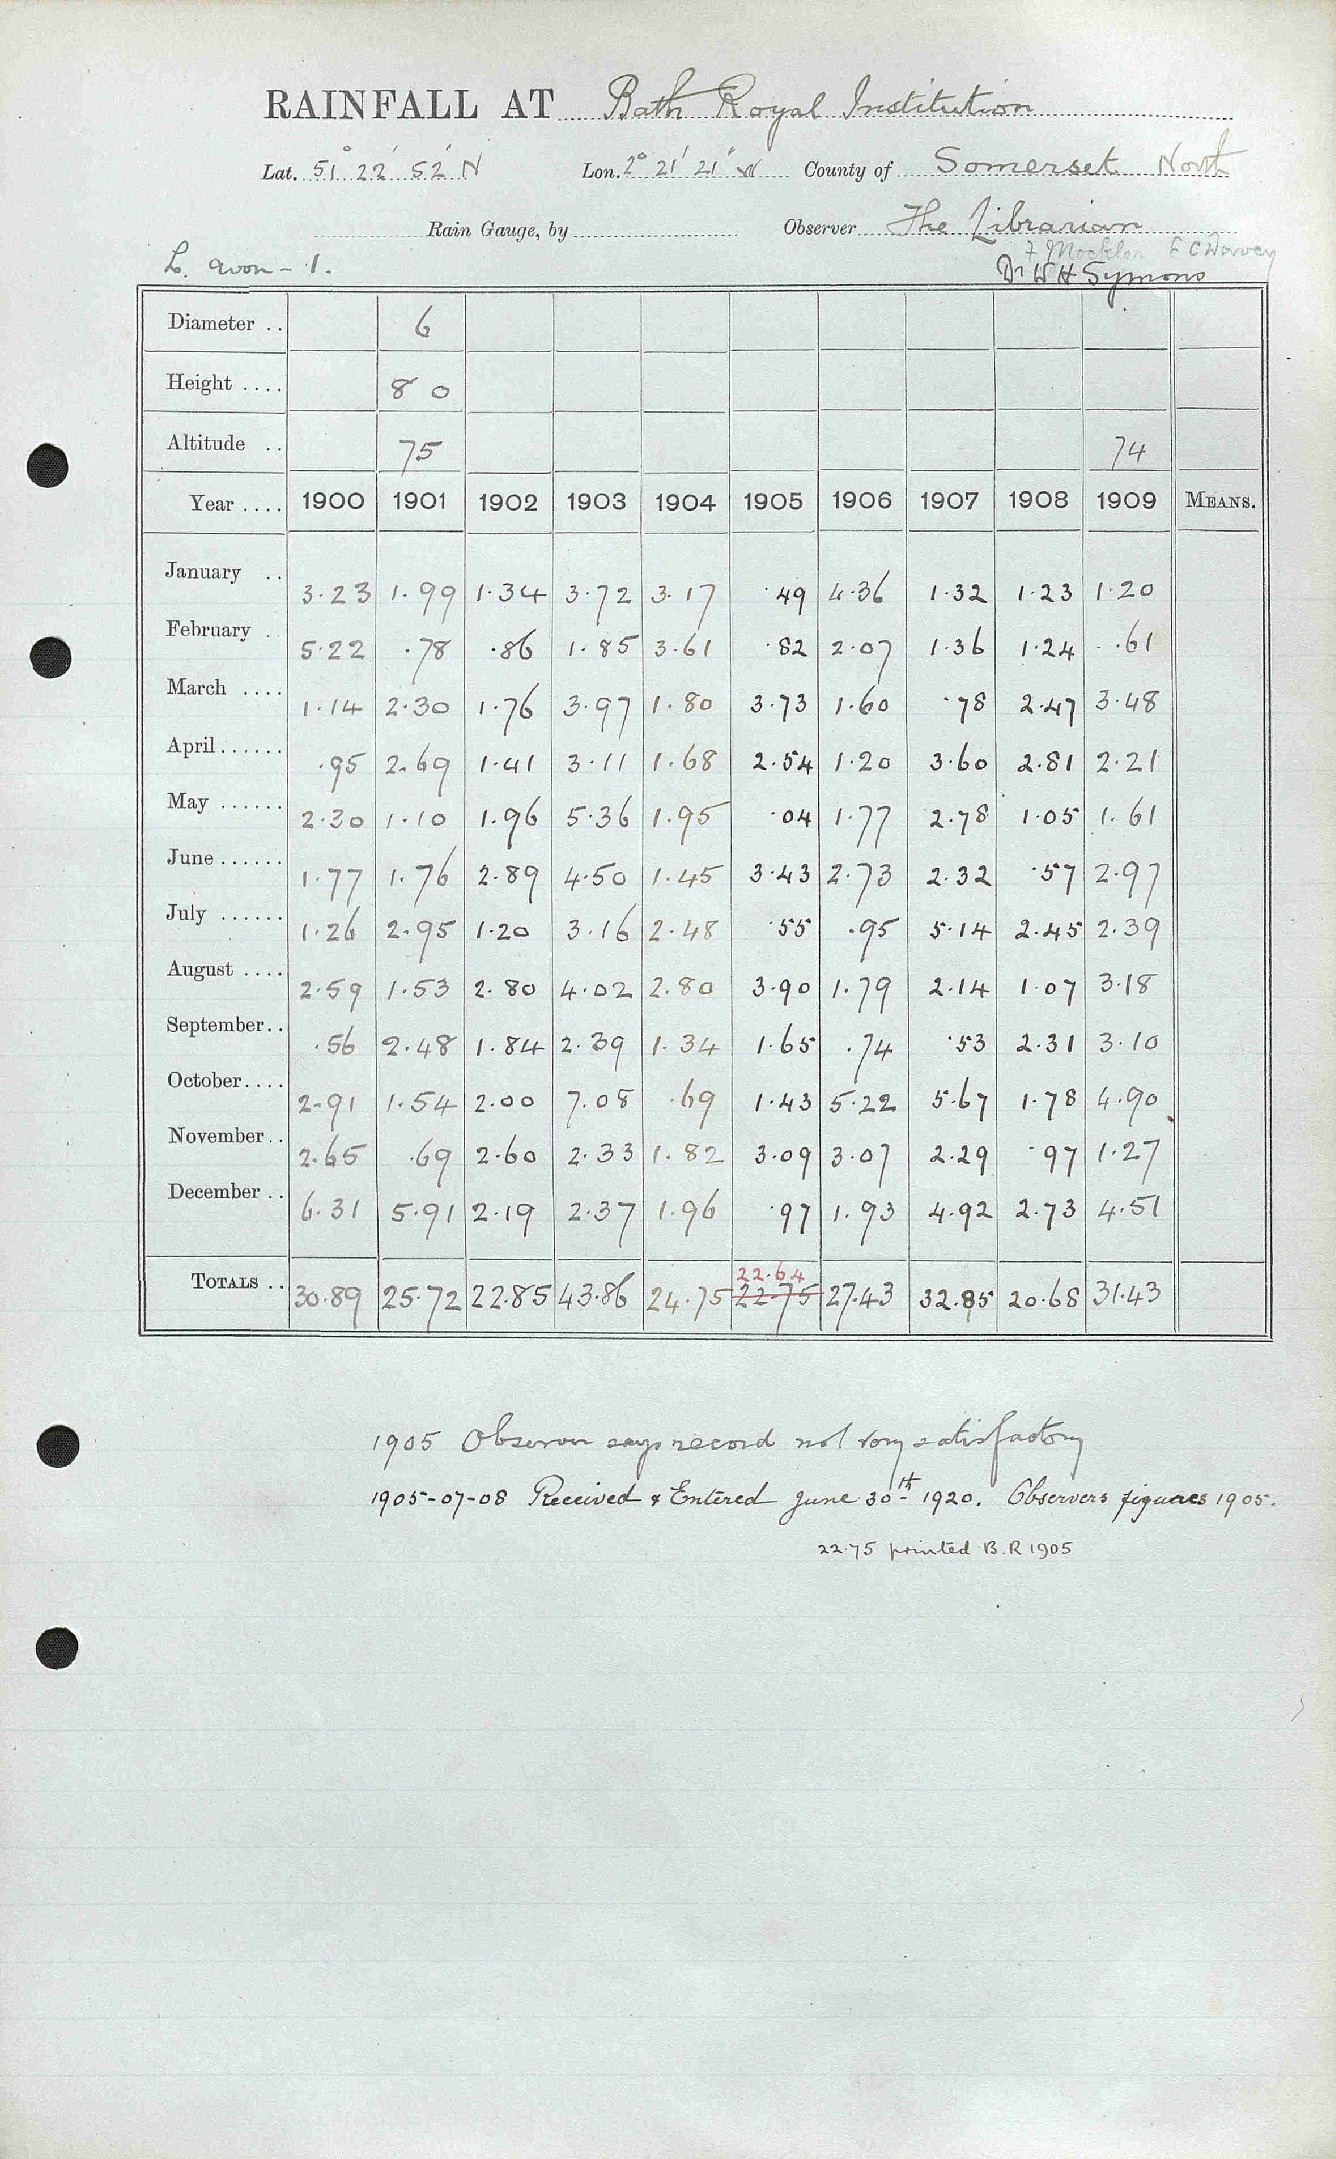 RAINFALL AT Bath Royal Institution
Lat. 51° 22′ 52″ N Lon. 2° 21′ 21″ W County of Somerset North
Rain Gauge, by Observer The Librarian
L. Avon - 1. F Mockler E C Davey
Dr W H Symons
Diameter .. 6
Height .... 8 0
Altitude .. 75 74
Year .... 1900 1901 1902 1903 1904 1905 1906 1907 1908 1909 MEANS.
January .. 3.23 1.99 1.34 3.72 3.17 .49 4.36 1.32 1.23 1.20
February .. 5.22 .78 .86 1.85 3.61 .82 2.07 1.36 1.24 .61
March .... 1.14 2.30 1.76 3.97 1.80 3.73 1.60 .78 2.47 3.48
April ...... .95 2.69 1.41 3.11 1.68 2.54 1.20 3.60 2.81 2.21
May ...... 2.30 1.10 1.96 5.36 1.95 .04 1.77 2.78 1.05 1.61
June ...... 1.77 1.76 2.89 4.50 1.45 3.43 2.73 2.32 .57 2.97
July ...... 1.26 2.95 1.20 3.16 2.48 .55 .95 5.14 2.45 2.39
August .... 2.59 1.53 2.80 4.02 2.80 3.90 1.79 2.14 1.07 3.18
September.. .56 2.48 1.84 2.39 1.34 1.65 .74 .53 2.31 3.10
October.... 2.91 1.54 2.00 7.08 .69 1.43 5.22 5.67 1.78 4.90
November .. 2.65 .69 2.60 2.33 1.82 3.09 3.07 2.29 .97 1.27
December .. 6.31 5.91 2.19 2.37 1.96 .97 1.93 4.92 2.73 4.51
22.64
TOTALS .. 30.89 25.72 22.85 43.86 24.75 22.75 27.43 32.85 20.68 31.43
1905 Observer says record not very satisfactory
1905-07-08 Received & Entered June 30th 1920. Observers figures 1905.
22.75 printed B.R 1905